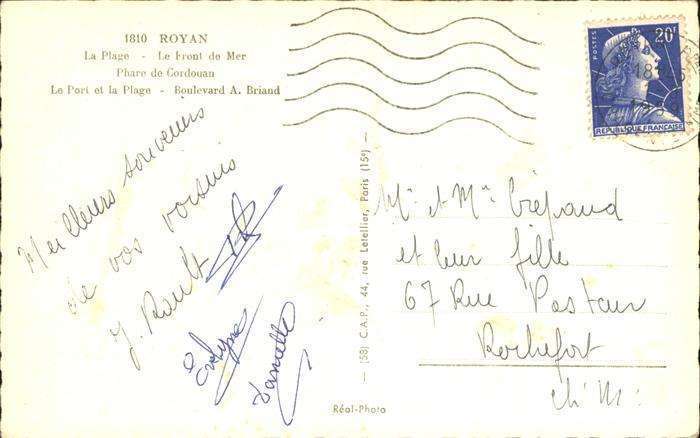 1810 ROYAN
La Plage - Le Front de Mer
Phare de Cordouan
Le Port et la Plage - Boulevard A. Briand
Meilleurs souvenirs
de vos voisins
J. Rault
Evelyne
Danielle
Réal-Photo
— (58) C.A.P., 44, rue Letellier, Paris (15e) —
POSTES
20F
REPUBLIQUE FRANÇAISE
Mr et Mme Crépaud
et leur fille
67 Rue Pasteur
Rochefort
Ch. Me